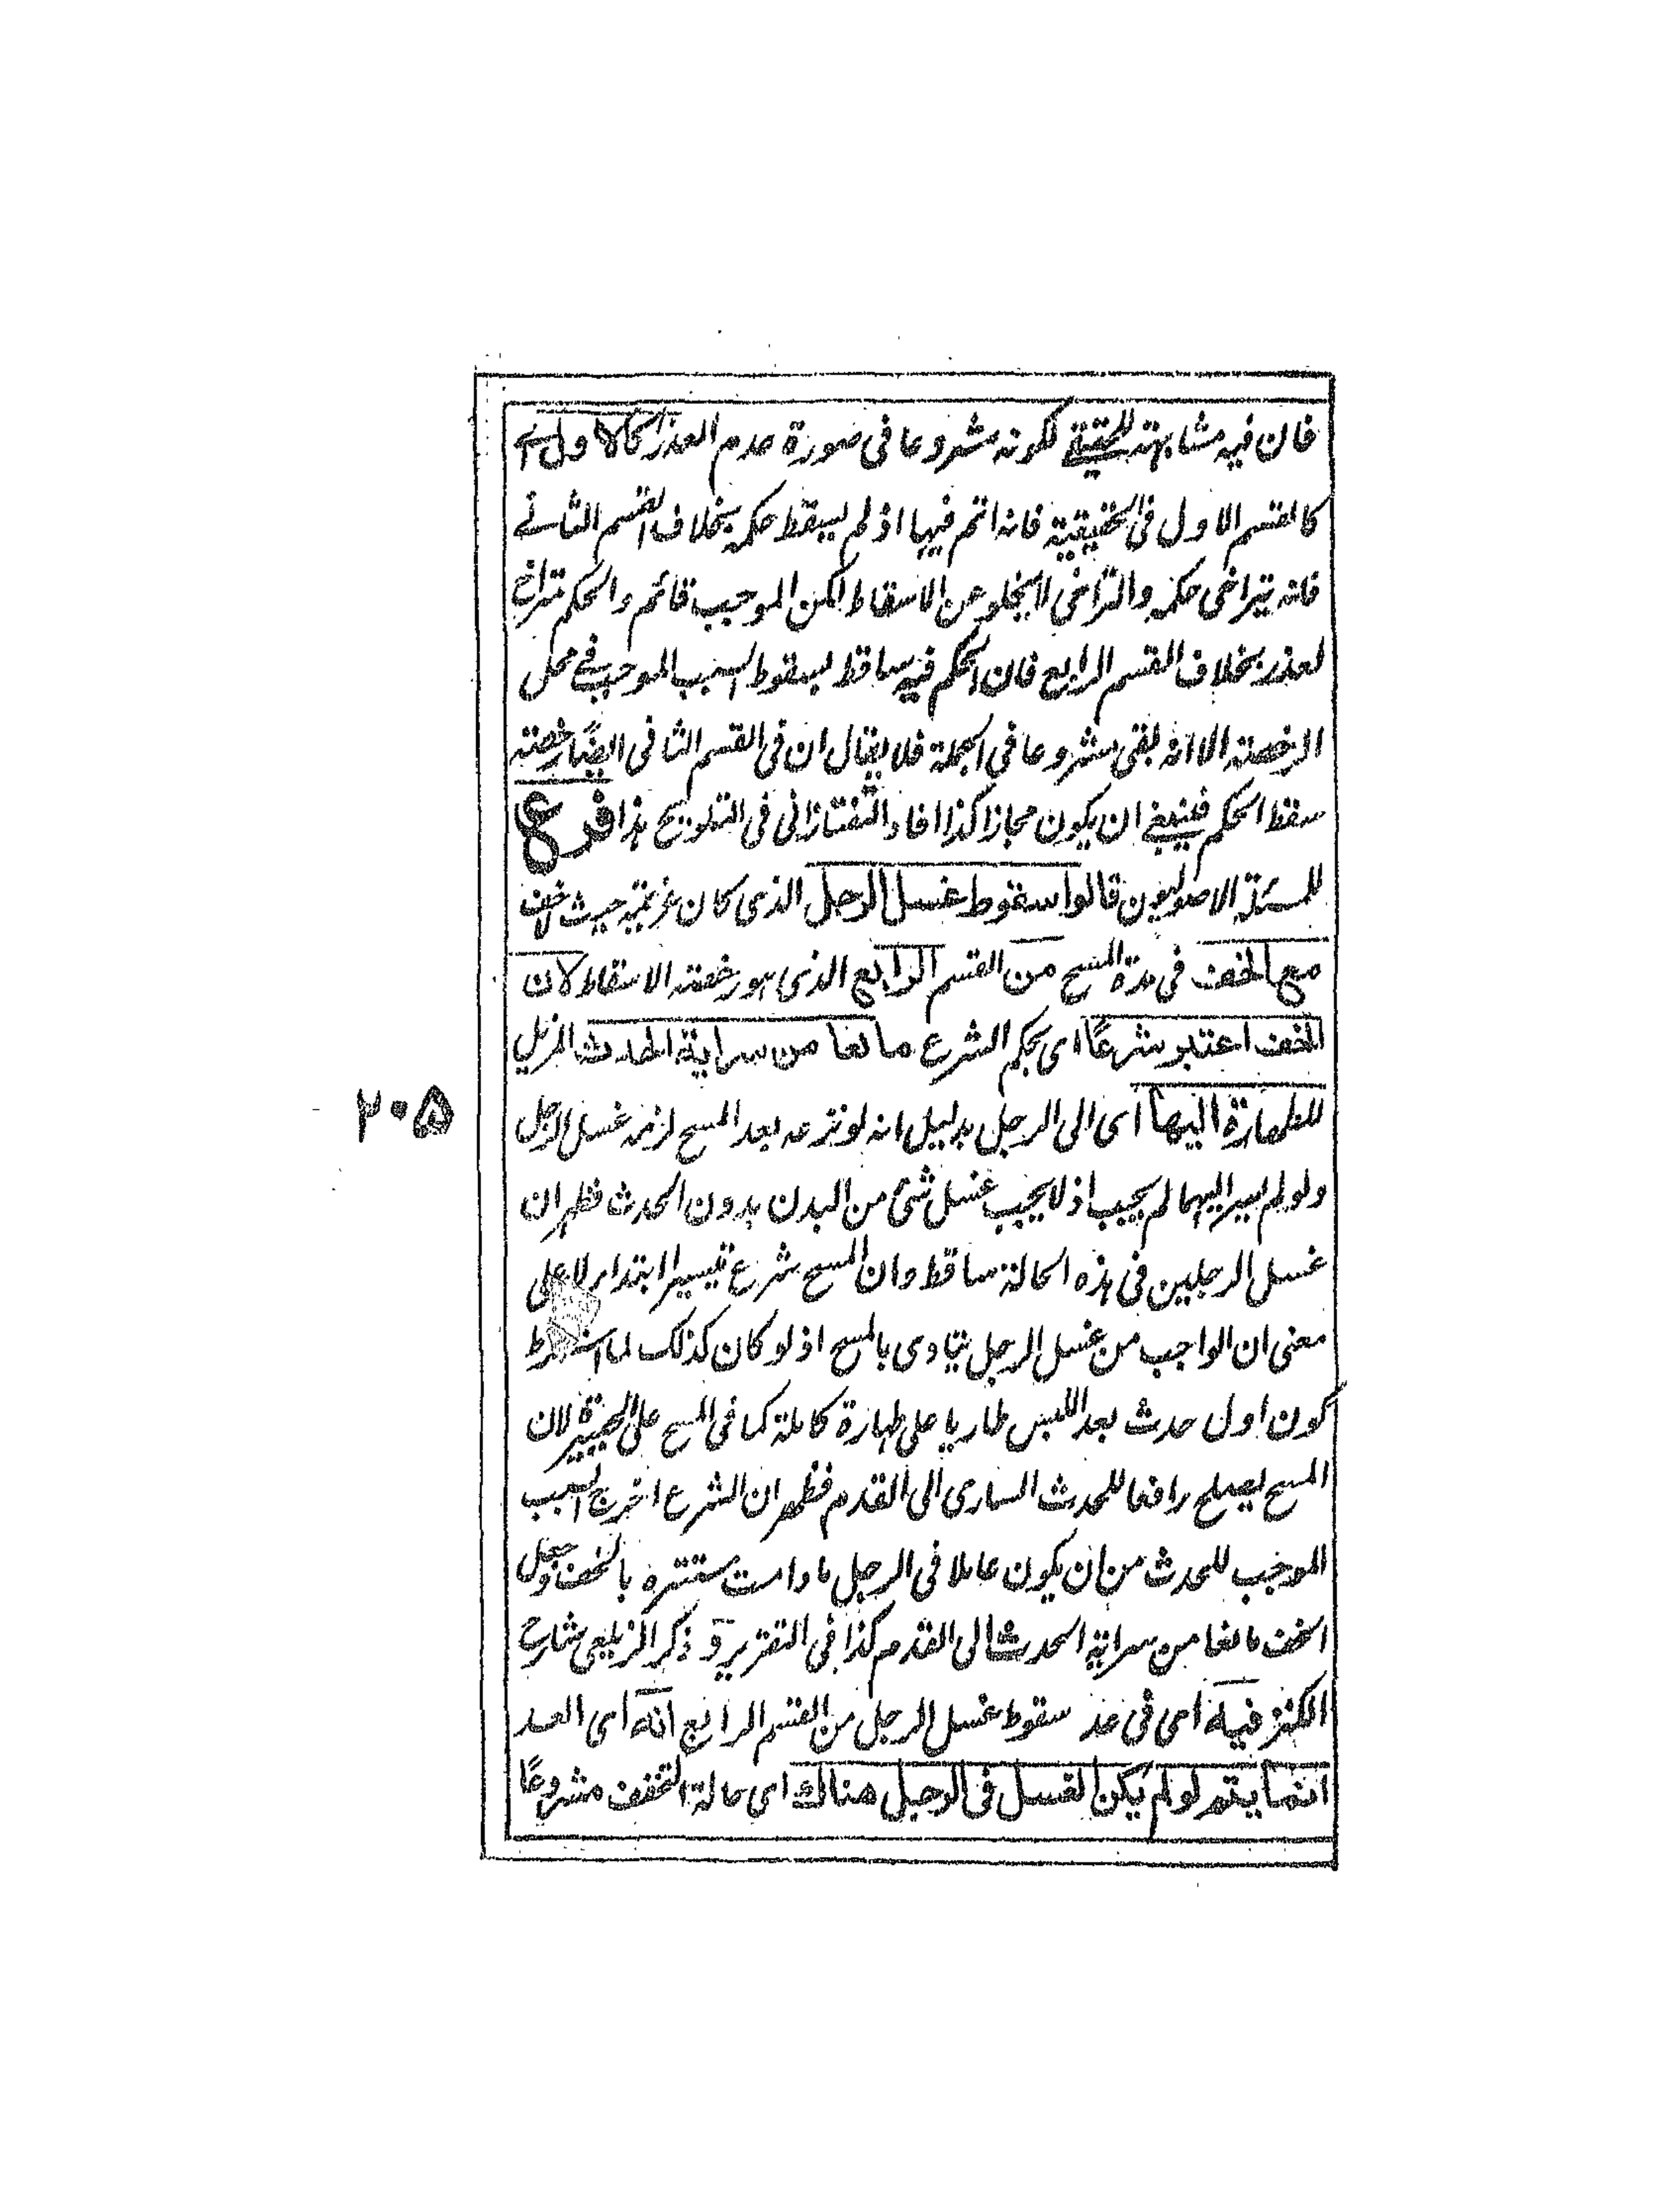 فان فيه مشابهة للحقيقة لكونه مشروعا فى صورة عدم العذر كالاول اے
كالقسم الاول فى الحقيقية فانه اتم فيها اذ لم يسقط حكمه بخلاف القسم الثانے
فانه يتراخى حكمه والتراخى لا يخلو عن الاسقاط لكن الموجب قائم والحكم متراخ
لعذر بخلاف القسم الرابع فان الحكم فيه ساقط بسقوط السبب الموجب فى محل
الرخصة الا انه بقى مشروعا فى الجملة فلا يقال ان فى القسم الثانى ايضًا رخصة
سقط الحكم فينبغى ان يكون مجازا كذا افاد التفتازانى فى التلويح هذا فرع
للمسئلة الاصوليون قالوا سقوط غسل الرجل الذى كان عزيمة حيث لا خف
مع الخف فى مدة المسح من القسم الرابع الذى هو رخصة الاسقاط لان
الخف اعتبر شرعًا اى بحكم الشرع مانعا من سراية الحدث المزيل
للطهارة اليها اى الى الرجل بدليل انه لو نزعه بعد المسح لزمه غسل الرجل
ولو لم يسر اليهما لم يجب اذ لا يجب غسل شئ من البدن بدون الحدث فظهر ان
غسل الرجلين فى هذه الحالة ساقط وان المسح شرع تيسيرا ابتداء لا على
معنى ان الواجب من غسل الرجل يتادى بالمسح اذ لو كان كذلك لما اشترط
كون اول حدث بعد اللبس طاريا على طهارة كاملة كما فى المسح على الجبيرة لان
المسح يصلح رافعا للحدث السارى الى القدم فظهر ان الشرع اخرج السبب
الموجب للحدث من ان يكون عاملا فى الرجل ما دامت مستترة بالخف وجعل
الخف مانعا من سراية الحدث الى القدم كذا فى التقرير و ذكر الزيلعى شارح
الكنز فيه اى فى عد سقوط غسل الرجل من القسم الرابع انه اى العد
انما يتم لو لم يكن الغسل فى الرجل هناك اى حالة التخفف مشروعًا
۲۰۵